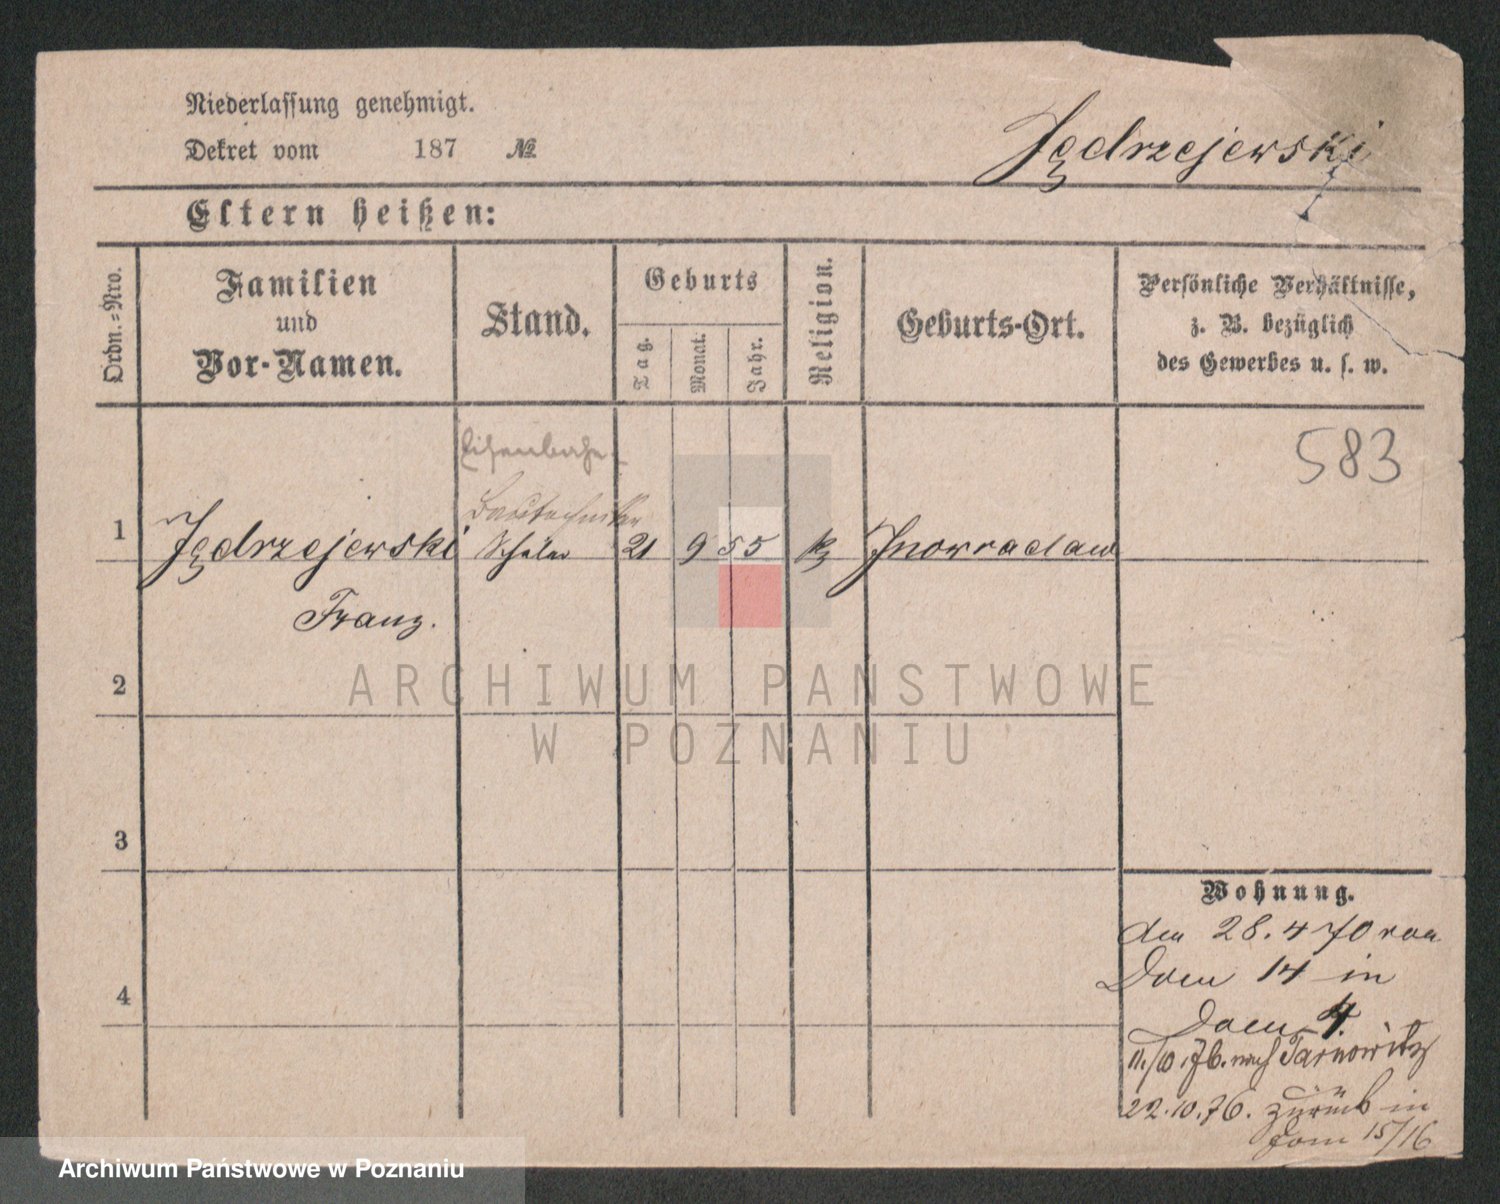 Niederlassung genehmigt.
Dekret vom 187 №
Jędrzejewski
Eltern heißen:
Ordn.-Nro.
Familien
und
Vor-Namen.
Stand.
Geburts
Tag.
Monat.
Jahr.
Religion.
Geburts-Ort.
Persönliche Verhältnisse,
z. B. bezüglich
des Gewerbes u. s. w.
583
Eisenbahn-
Bautechniker
1 Jędrzejewski Schüler 21 9 55 k Inowraclaw
Franz.
2
3
4
Wohnung.
den 28. 4 70 von
Dom 14 in
Dom 4.
11./10.76. nach Tarnowitz
22.10.76. zurück in
Dom 15/16
ARCHIWUM PAŃSTWOWE
W POZNANIU
Archiwum Państwowe w Poznaniu